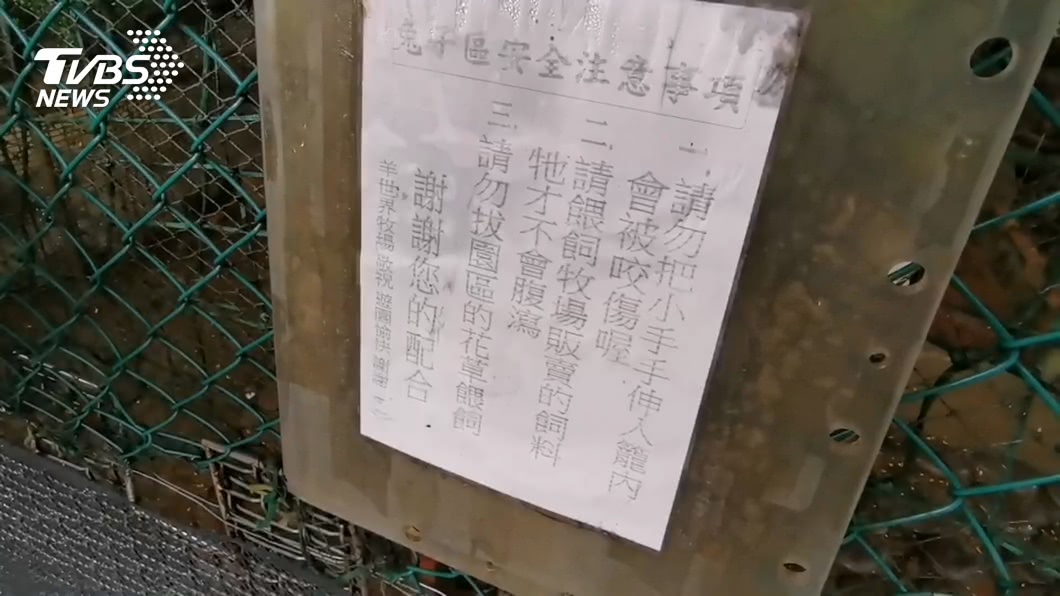 TVBS
NEWS
兔子區安全注意事項
一.請勿把小手手伸入籠內
會被咬傷喔
二.請餵飼牧場販賣的飼料
牠才不會腹瀉
三.請勿拔園區的花草餵飼
謝謝您的配合
羊世界牧場 遊園愉快 謝謝